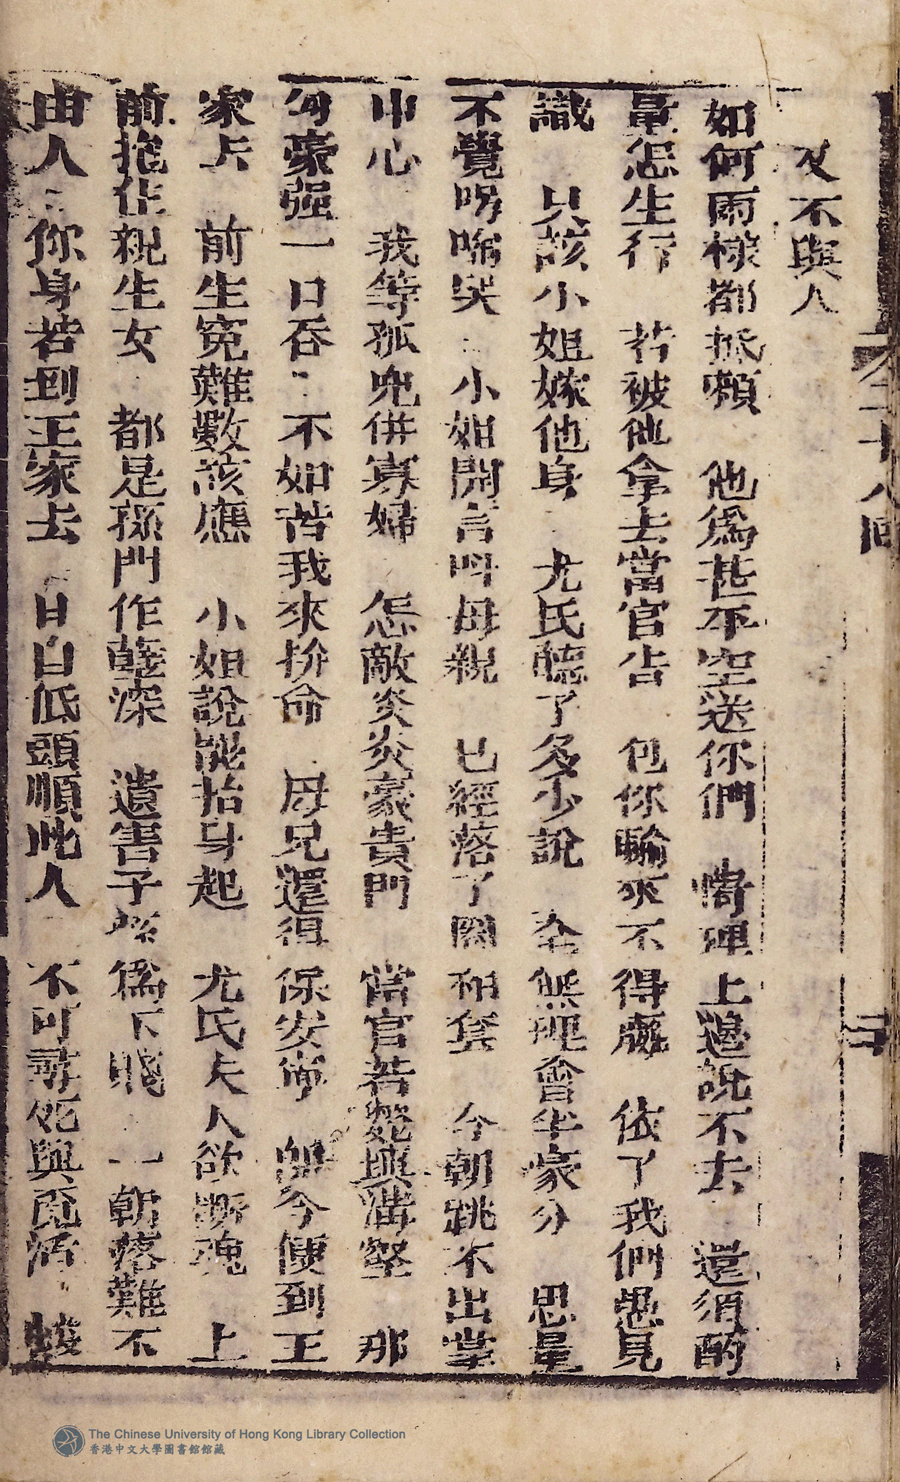 又不與人
如何兩樣都抵賴　他爲甚平空送你們　情理上邊說不去　還須酌
量怎生行　若被他拿去當官告　包你輸來不得贏　依了我們愚見
識　只該小姐嫁他身　尤氏聽了多少說　全無理會半豪分　思量
不覺啼哭　小姐開言呌母親　已經落了圈和套　今朝跳不出掌
中心　我等孤兒併寡婦　怎敵炎炎豪貴門　當官若斃與溝壑　那
勾豪强一口吞　不如苦我來拚命　母兄還得保安寧　卽今便到王
家去　前生冤難數該應　小姐說罷抬身起　尤氏夫人欲斷魂　上
前抱住親生女　都是孫門作孽深　遺害子孫爲下賤　一朝落難不
由人　你身若到王家去　甘自低頭順此人　不可尋死與覓活
二十八囘
The Chinese University of Hong Kong Library Collection
香港中文大學圖書館館藏